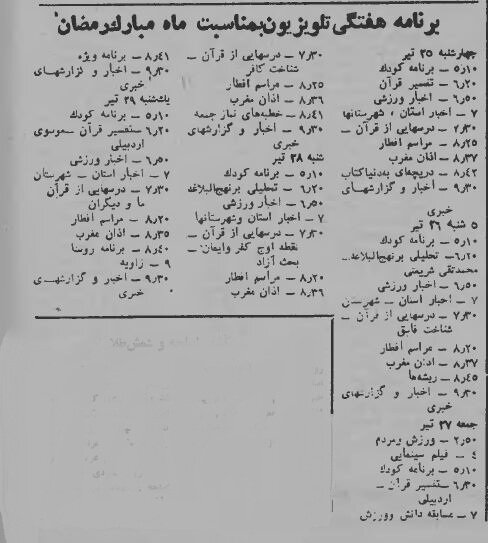 برنامه هفتگی تلویزیون بمناسبت ماه مبارک رمضان
چهارشنبه ۲۵ تیر
۵٫۱۰ — برنامه کودک
۶٫۲۰ — تفسیر قرآن
۶٫۵۰ — اخبار ورزشی
۷ — اخبار استان ، شهرستانها
۷٫۳۰ — درسهایی از قرآن —
۸٫۲۵ — مراسم افطار
۸٫۳۷ — اذان مغرب
۸٫۴۲ — دریچه‌ای به‌دنیا‌کتاب
۹٫۳۰ — اخبار و گزارشهای
خبری
۵ شنبه ۲۶ تیر
۵٫۱۰ — برنامه کودک
۶٫۲۰ — تحلیلی برنهج‌البلاغه_
محمدتقی شریعتی
۶٫۵۰ — اخبار ورزشی
۷ — اخبار استان — شهرستان
۷٫۳۰ — درسهایی از قرآن —
شناخت فاسق
۸٫۲۰ — مراسم افطار
۸٫۳۷ — اذان مغرب
۸٫۴۵ — ریشه‌ها
۹٫۳۰ — اخبار و گزارشهای
خبری
جمعه ۲۷ تیر
۲٫۵۰ — ورزش ومردم
۴ — فیلم سینمایی
۵٫۱۰ — برنامه کودک
۶٫۳۰ — تفسیر قرآن —
اردبیلی
۷ — مسابقه دانش وورزش
۷٫۳۰ — درسهایی از قرآن —
شناخت کافر
۸٫۲۵ — مراسم افطار
۸٫۳۶ — اذان مغرب
۸٫۴۱ — خطبه‌های نماز جمعه
۹٫۳۰ — اخبار و گزارشهای
خبری
شنبه ۲۸ تیر
۵٫۱۰ — برنامه کودک
۶٫۲۰ — تحلیلی برنهج‌البلاغه
۶٫۵۰ — اخبار ورزشی
۷ — اخبار استان وشهرستانها
۷٫۳۰ — درسهایی از قرآن —
نقطه اوج کفر وایمان —
بحث آزاد
۸٫۲۰ — مراسم افطار
۸٫۳۶ — اذان مغرب
۸٫۴۱ — برنامه ویژه
۹٫۳۰ — اخبار و گزارشهای
خبری
یک‌شنبه ۲۹ تیر
۵٫۱۰ — برنامه کودک
۶٫۲۰ — تفسیر قرآن — موسوی
اردبیلی
۶٫۵۰ — اخبار ورزشی
۷ — اخبار استان — شهرستان
۷٫۳۰ — درسهایی از قرآن
ما و دیگران
۸٫۲۰ — مراسم افطار
۸٫۳۵ — اذان مغرب
۸٫۴۰ — برنامه روستا
۹ — زاویه
۹٫۳۰ — اخبار و گزارشهای
خبری